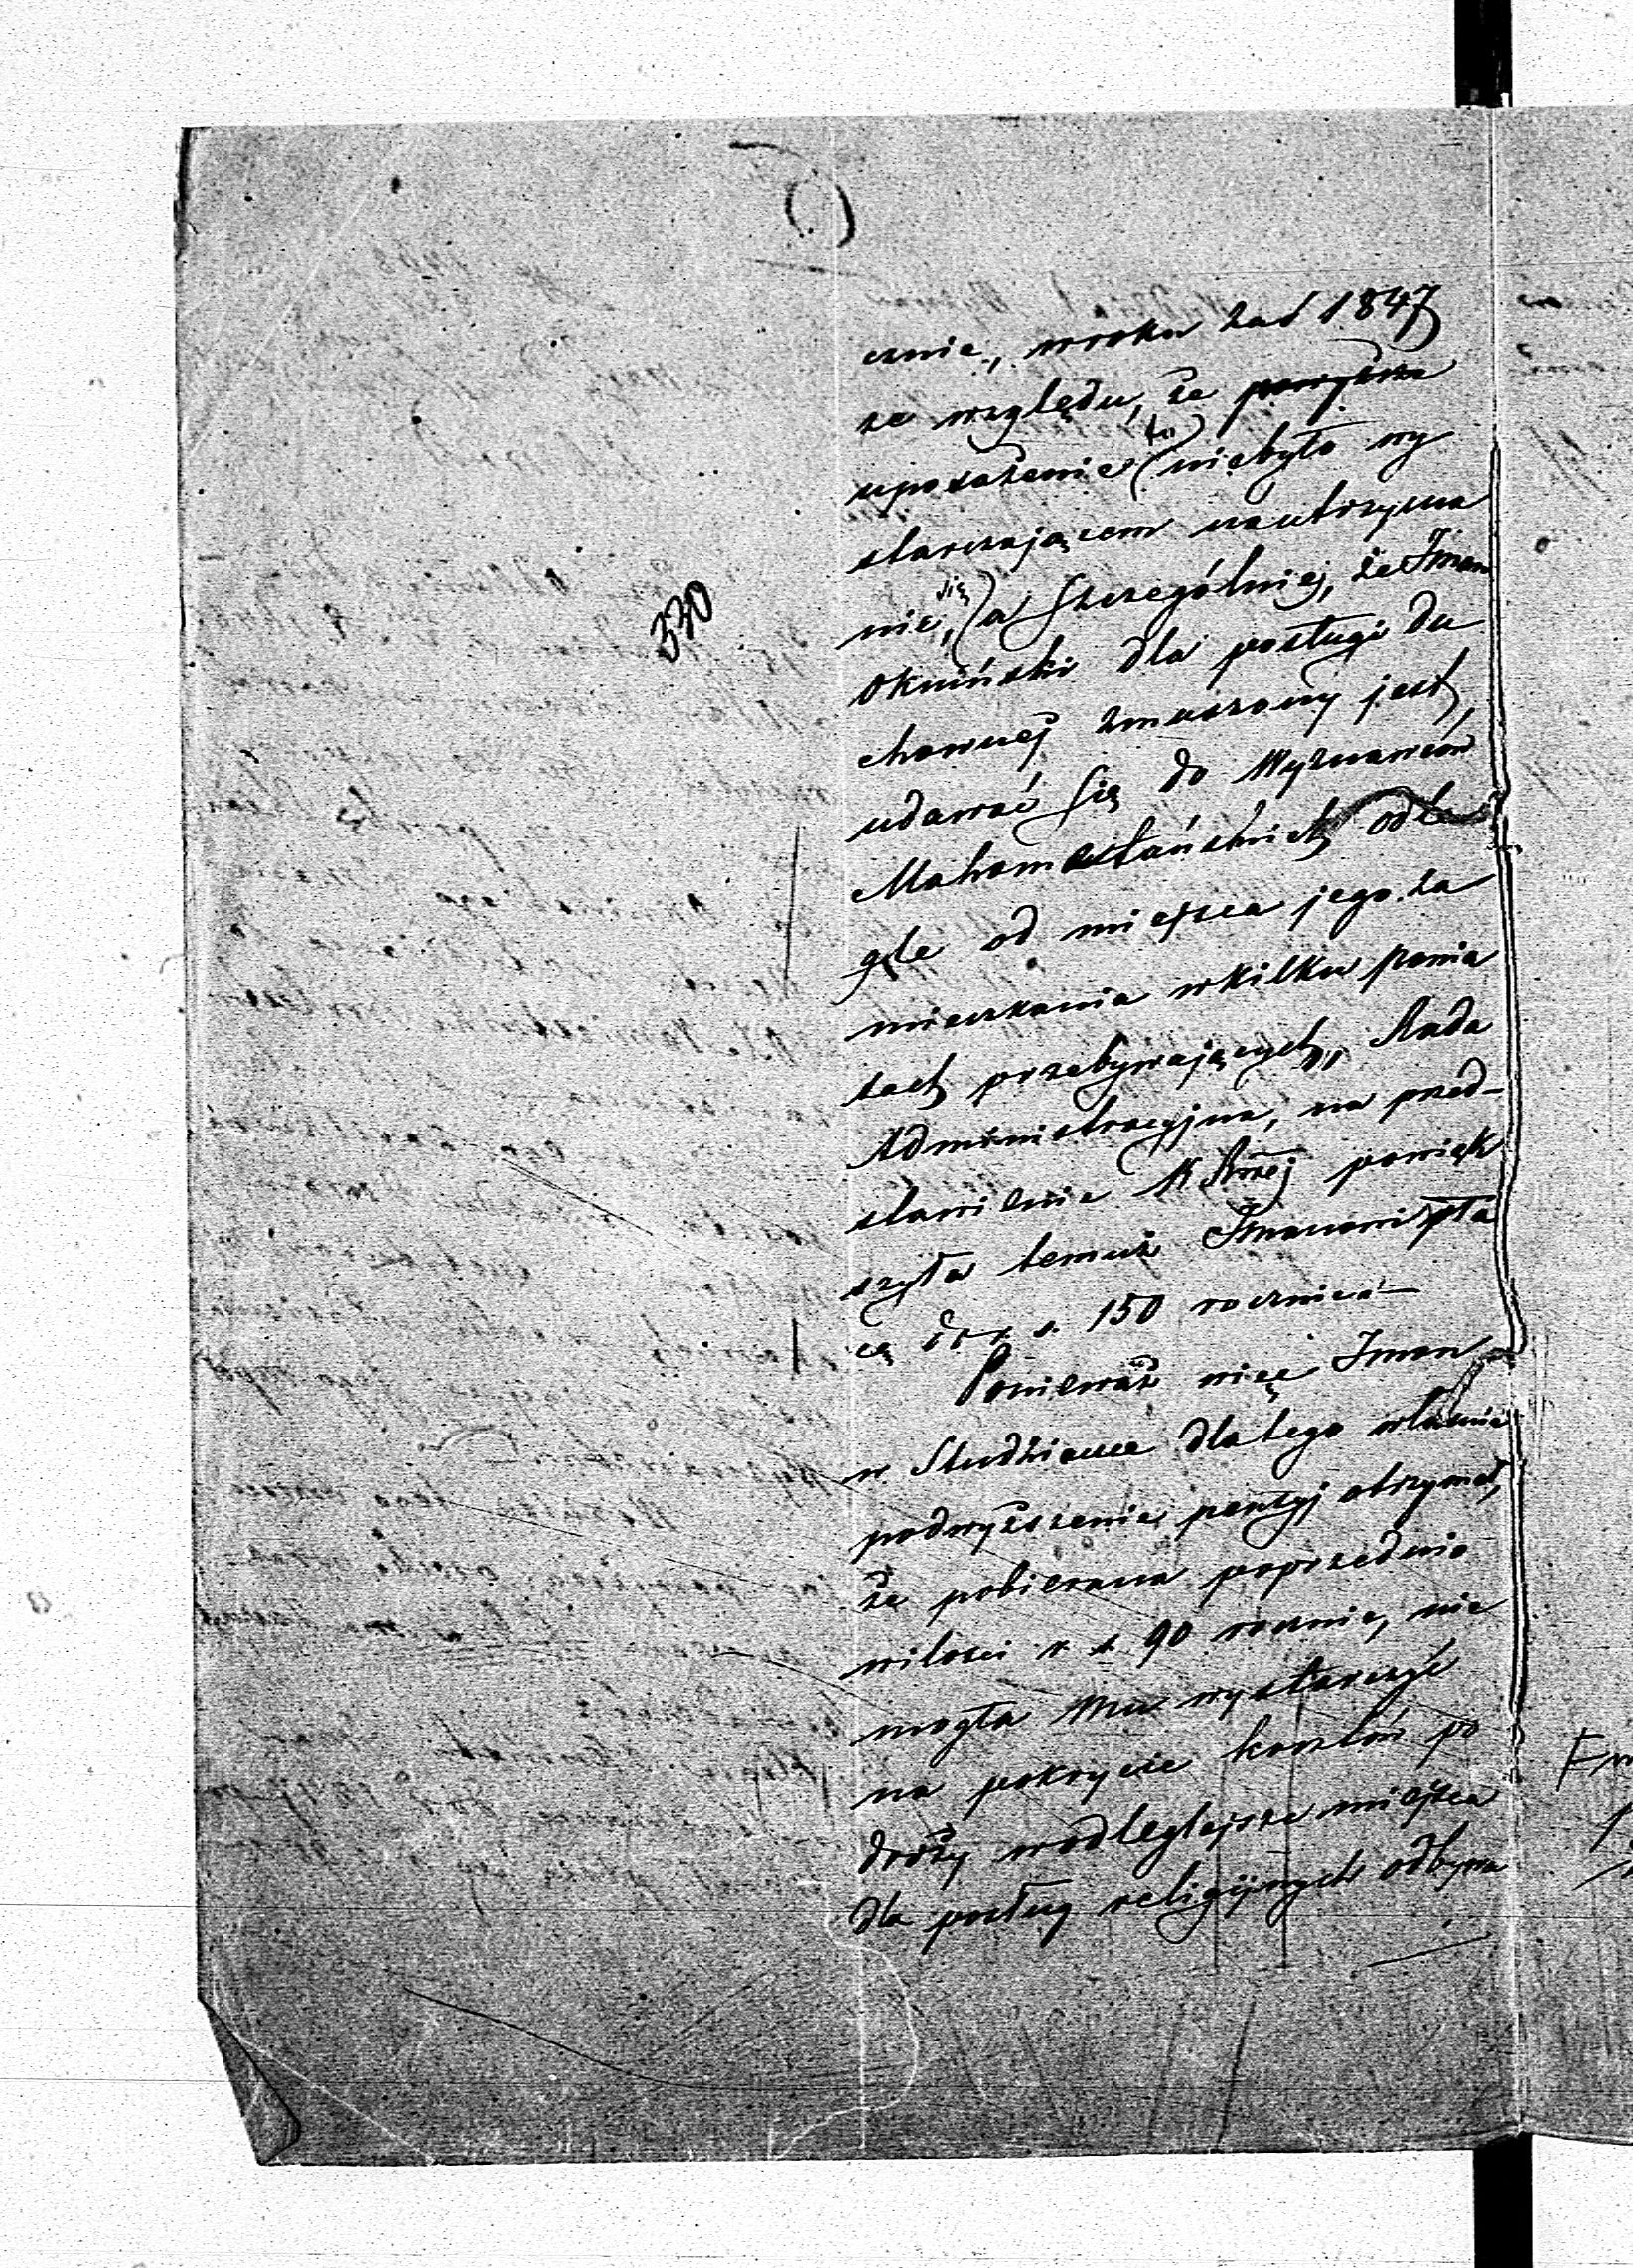 330
cznie, w roku zaś 1847
ze względu, że powyższe
uposażenie to niebyło wy
starczającem na utrzyma
nie się, a szczególniej, że Iman
Okmiński dla posługi du
chownej zmuszony jest,
udawać się do Wyznawców
Mahometańskich odle
gle od miejsca jego za
mieszkania w kilku powia
tach przebywających, Rada
Administracyjna, na przed-
stawienie K Rzej powięk
szyła temuż Imanowi pła
cę do r. s. 150 rocznie.—
Ponieważ więc Iman
w Studziance dlatego właśnie
podwyższenie pensyj otrzymał,
że pobierana poprzednio
w ilości r. s. 90 rocznie, nie
mogła mu wystarczyć
na pokrycie kosztów po
droży w odleglejsze miejsca
dla posług religijnych odbywa